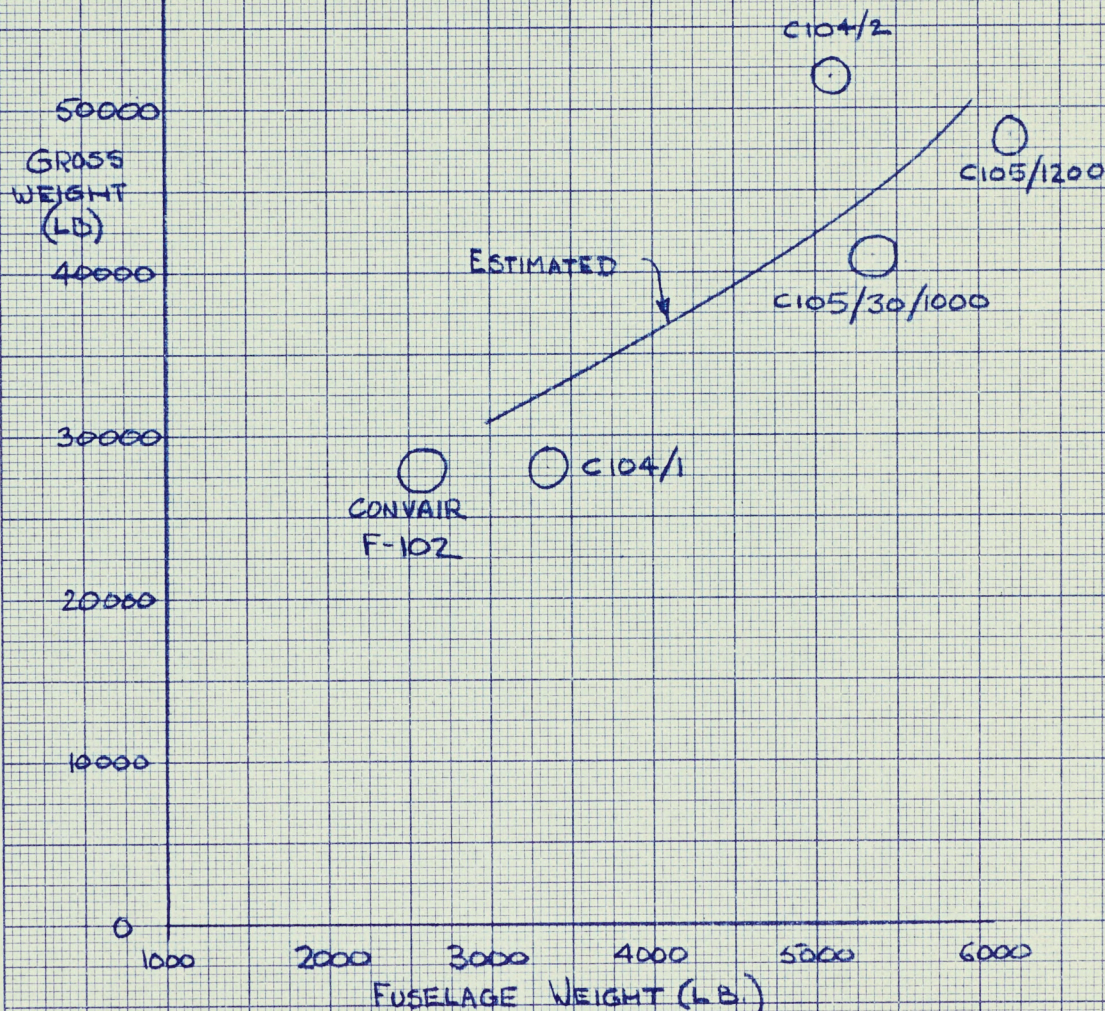 C104/2
50000
GROSS
WEIGHT
(LB)
C105/1200
ESTIMATED
40000
C105/30/1000
30000
C104/1
CONVAIR
F-102
20000
10000
0
1000 2000 3000 4000 5000 6000
FUSELAGE WEIGHT (LB.)